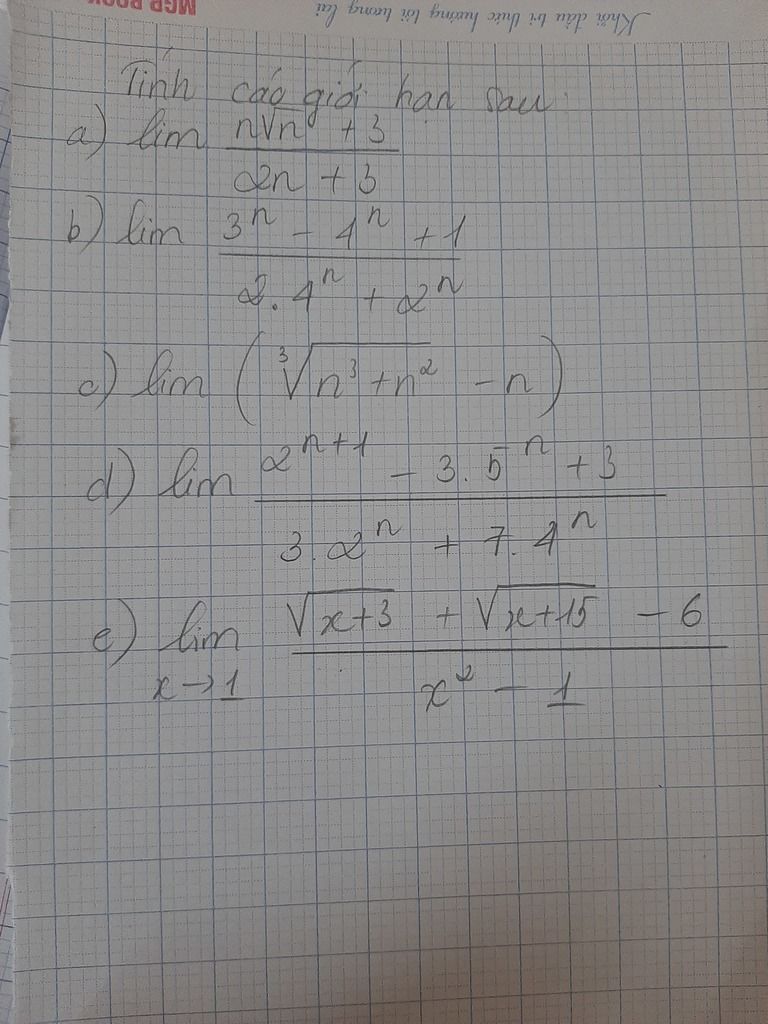 MGB BOOK
Khởi đầu tri thức hướng tới tương lai
Tính các giới hạn sau:
a) lim (n√n + 3)/(2n + 3)
b) lim (3^n - 4^n + 1)/(2.4^n + 2^n)
c) lim (∛(n^3 + n^2) - n)
d) lim (2^(n+1) - 3.5^n + 3)/(3.2^n + 7.4^n)
e) lim x→1 (√(x+3) + √(x+15) - 6)/(x^2 - 1)